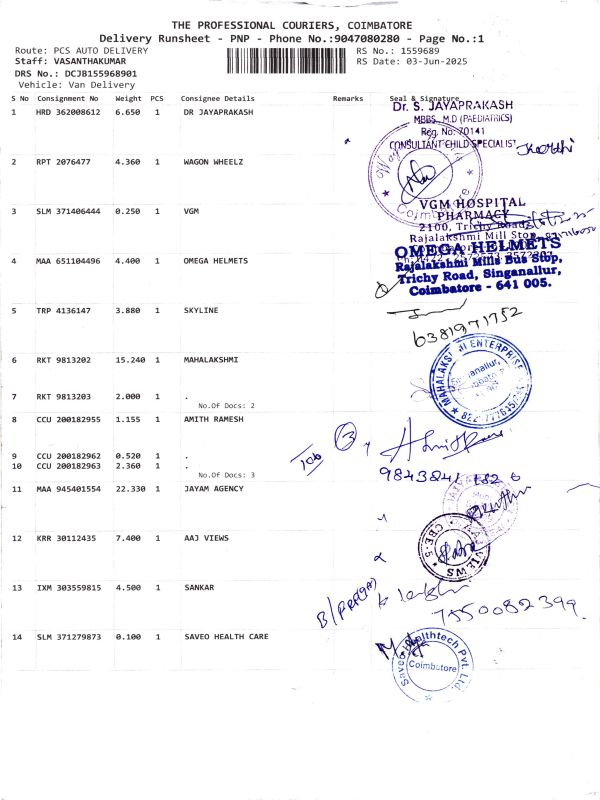 THE PROFESSIONAL COURIERS, COIMBATORE
Delivery Runsheet - PNP - Phone No.:9047080280 - Page No.:1
Route: PCS AUTO DELIVERY
RS No.: 1559689
Staff: VASANTHAKUMAR
RS Date: 03-Jun-2025
DRS No.: DCJB155968901
Vehicle: Van Delivery
S No Consignment No Weight PCS Consignee Details Remarks Seal & Signature
1 HRD 362008612 6.650 1 DR JAYAPRAKASH
Dr. S. JAYAPRAKASH
MBBS. M.D (PAEDIATRICS)
Reg. No: 70141
CONSULTANT CHILD SPECIALIST
2 RPT 2076477 4.360 1 WAGON WHEELZ
3 SLM 371406444 0.250 1 VGM
VGM HOSPITAL
PHARMACY
2100, Trichy Road
Rajalakshmi Mill Stop
4 MAA 651104496 4.400 1 OMEGA HELMETS
OMEGA HELMETS
Rajalakshmi Mills Bus Stop,
Trichy Road, Singanallur,
Coimbatore - 641 005.
5 TRP 4136147 3.880 1 SKYLINE
6381971752
6 RKT 9813202 15.240 1 MAHALAKSHMI
7 RKT 9813203 2.000 1 .
No.Of Docs: 2
8 CCU 200182955 1.155 1 AMITH RAMESH
9 CCU 200182962 0.520 1 .
10 CCU 200182963 2.360 1 .
No.Of Docs: 3
11 MAA 945401554 22.330 1 JAYAM AGENCY
12 KRR 30112435 7.400 1 AAJ VIEWS
13 IXM 303559815 4.500 1 SANKAR
7550082399
14 SLM 371279873 0.100 1 SAVEO HEALTH CARE
Saveo Healthtech Pvt. Ltd.
Coimbatore